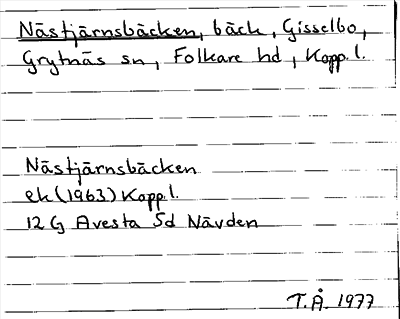 Nästjärnsbäcken, bäck, Gisselbo,
Grytnäs sn, Folkare hd, Kopp.l.
Nästjärnsbäcken
ek (1963) Kopp.l.
12 G Avesta 5d Nävden
T.Å. 1977